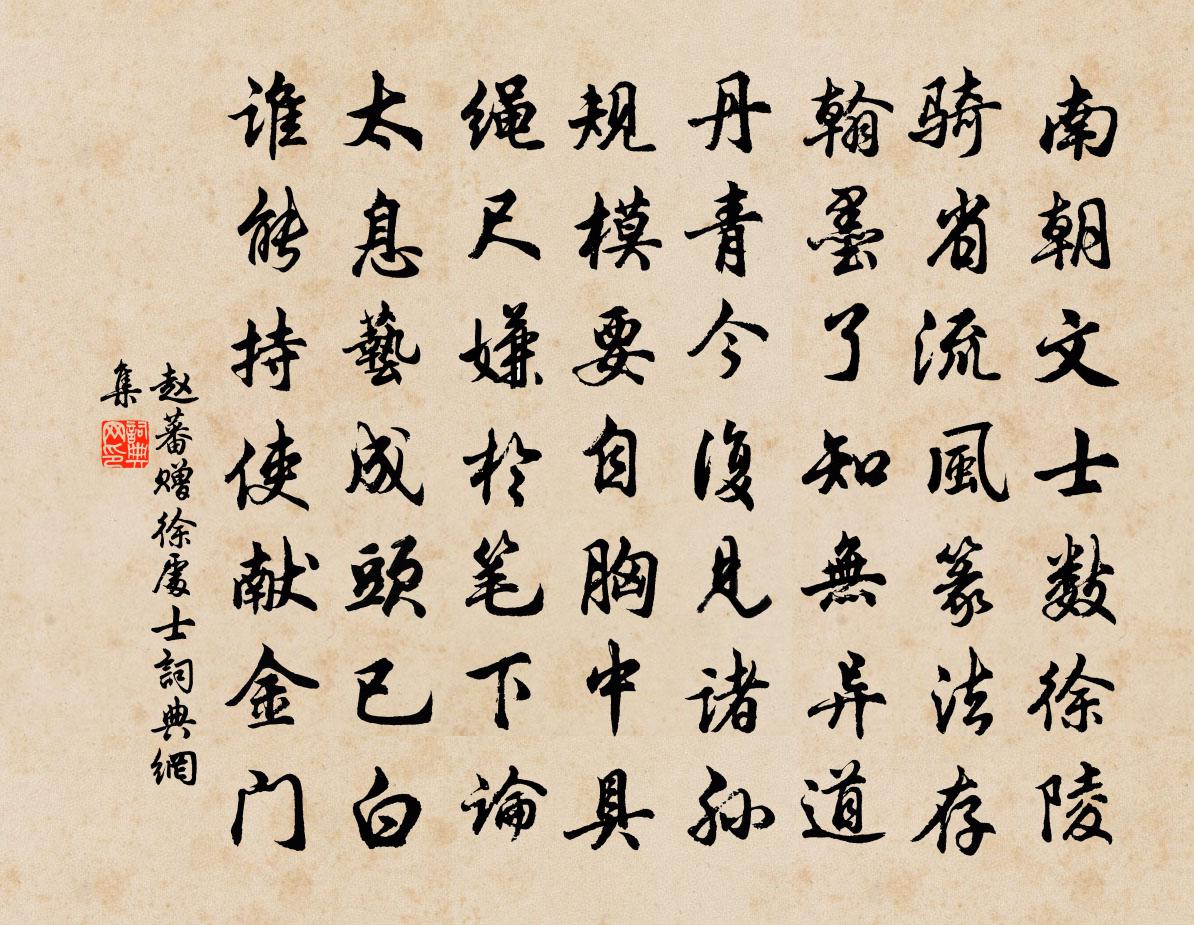 南朝文士数徐陵
骑省流風篆法存
翰墨了知無异道
丹青今復见诸孙
规模要自胸中具
绳尺嫌於笔下論
太息藝成頭已白
谁能持使献金门
赵蕃赠徐處士詞典網
集
詞典网印